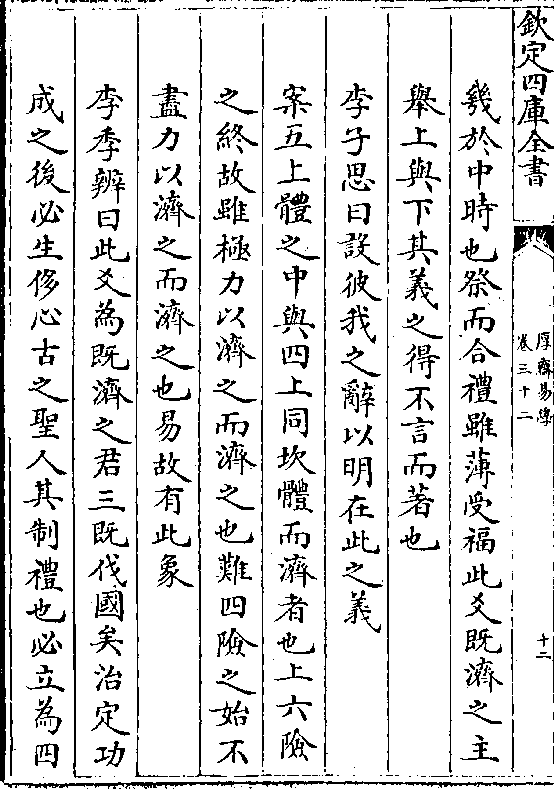 欽定四庫全書
厚齋易學
卷三十二
十二
幾於中時也祭而合禮雖薄受福此爻既濟之主
舉上與下其義之得不言而著也
李子思曰設彼我之辭以明在此之義
案五上體之中與四上同坎體而濟者也上六險
之終故雖極力以濟之而濟之也難四險之始不
盡力以濟之而濟之也易故有此象
李季辨曰此爻為既濟之君三既伐國矣治定功
成之後必生侈心古之聖人其制禮也必立為四